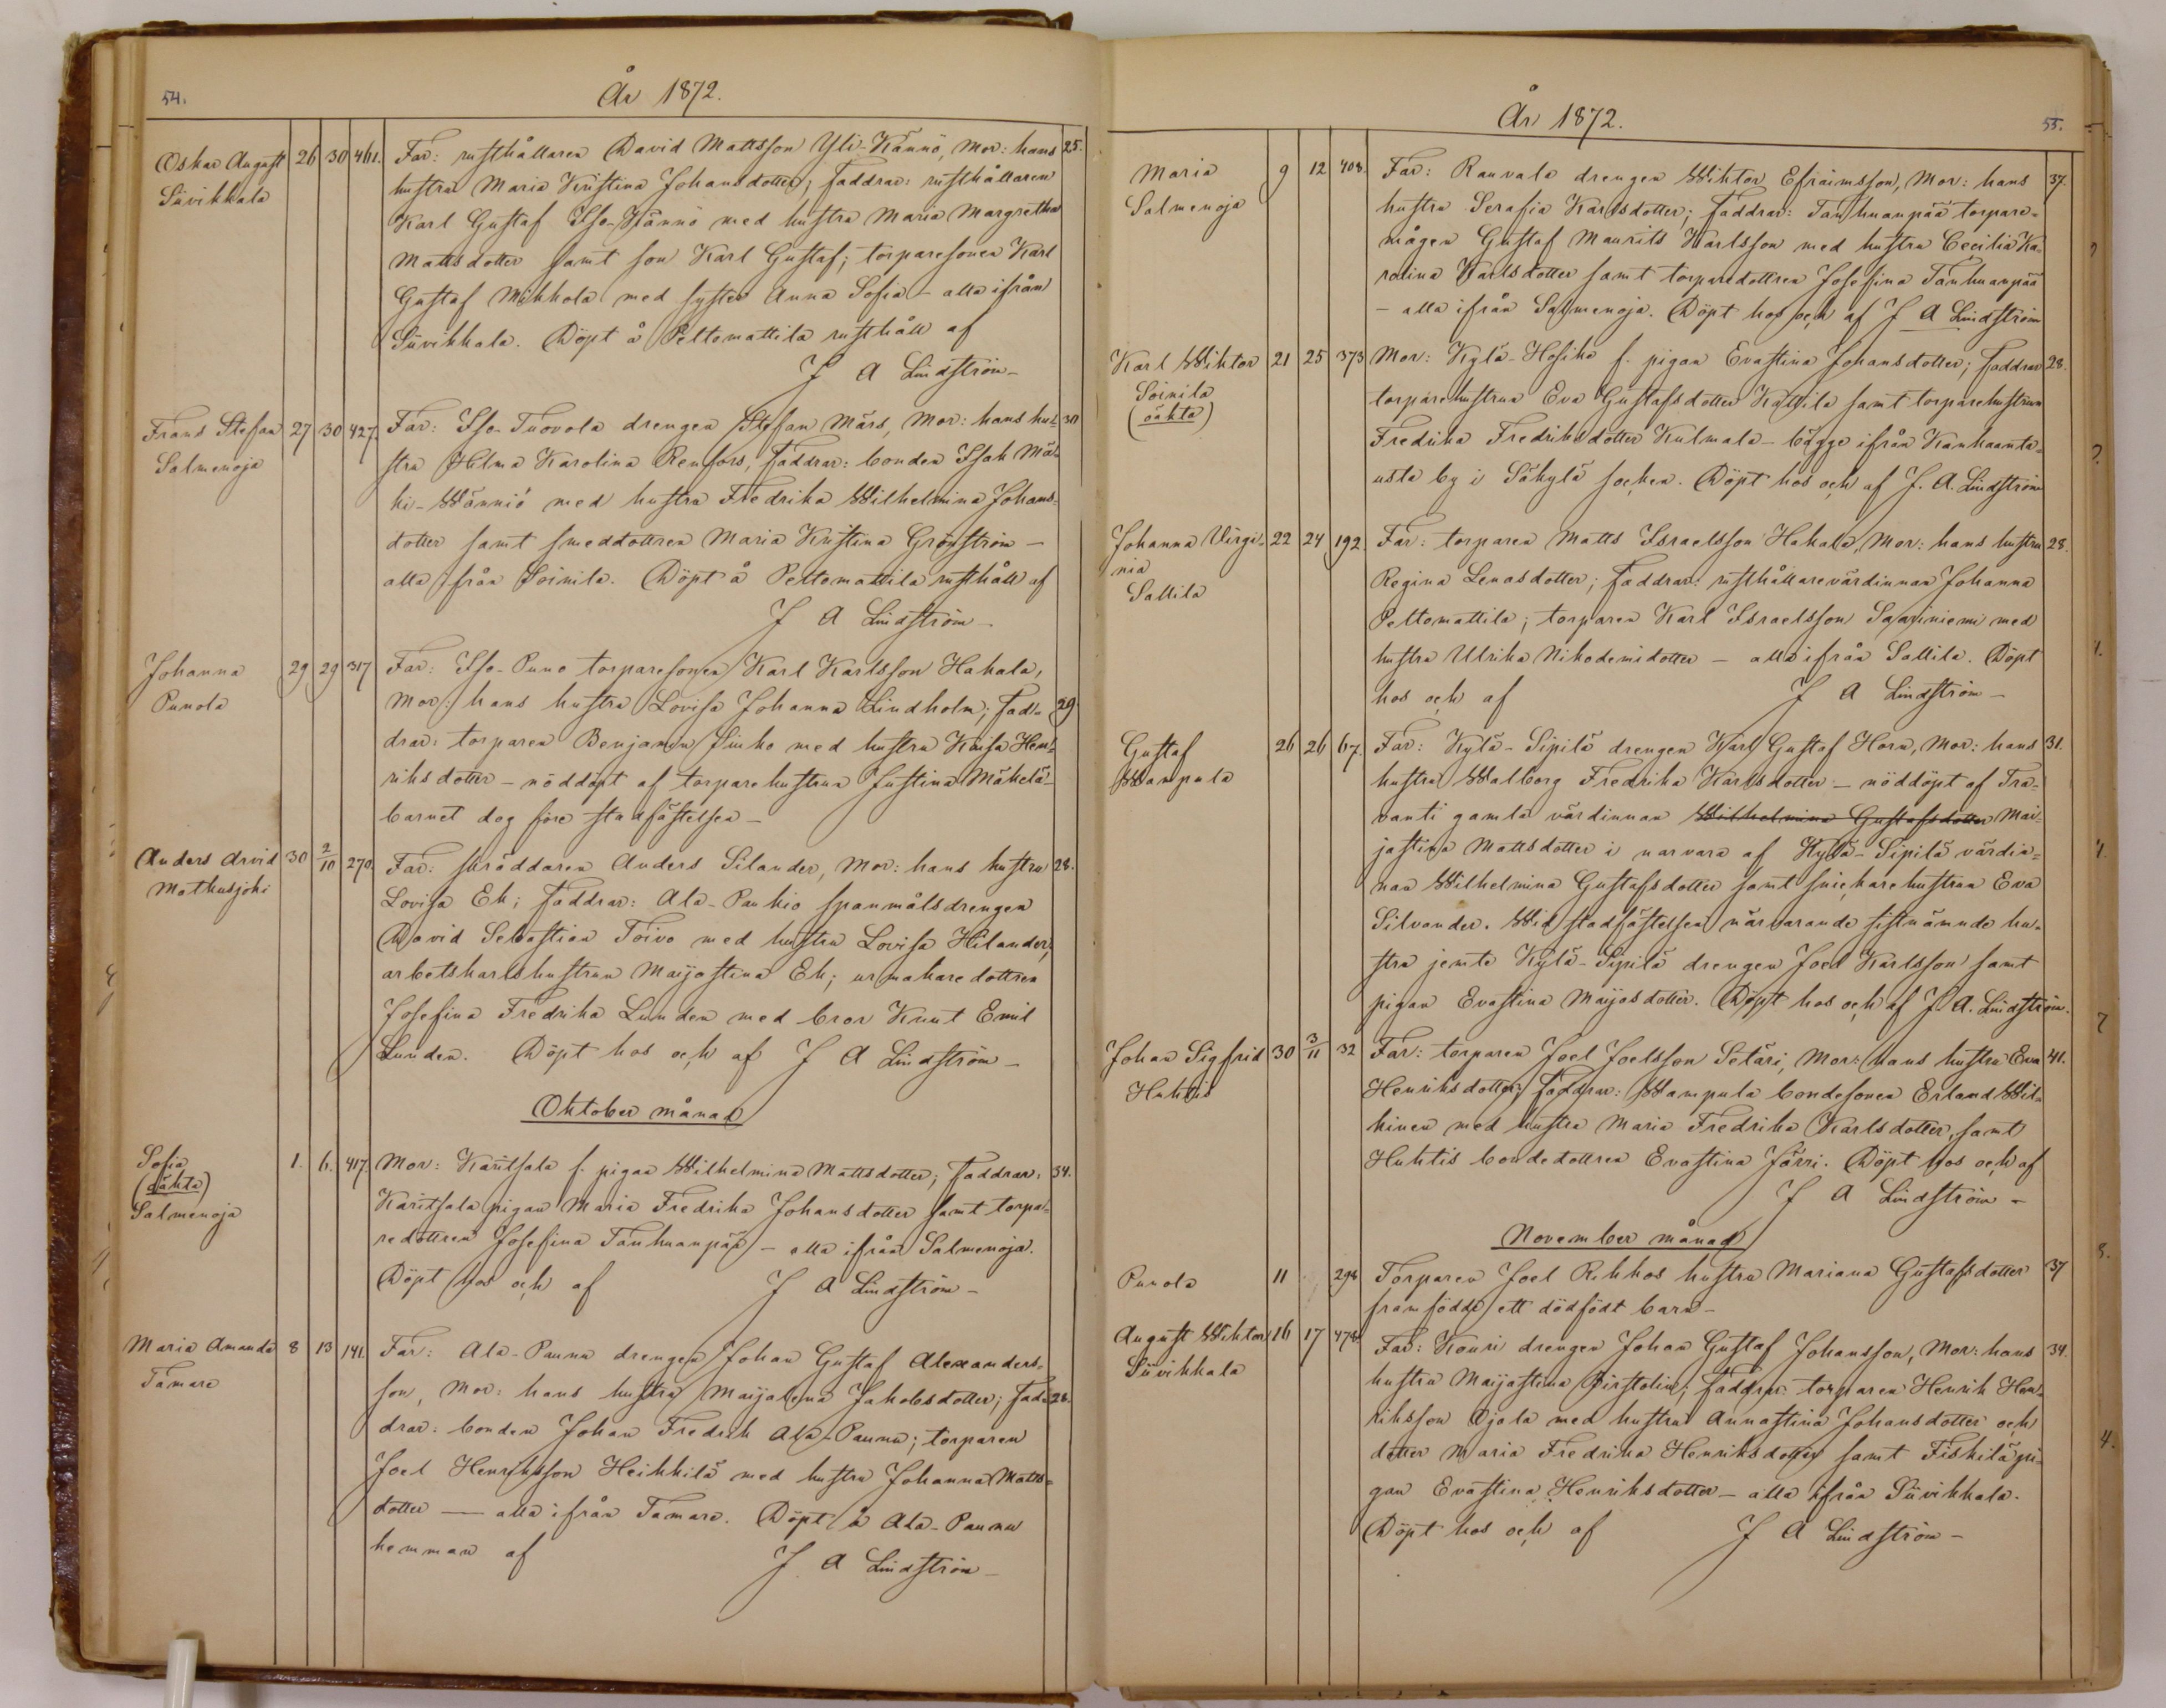 54.
År 1872.
Oskar August 26 30 461. Far: rusthållaren David Mattsson Yli-Kännö, Mor: hans 25.
Süvikkala hustru Maria Kristina Johansdotter; faddrar: rusthållaren
Karl Gustaf Iso-Kännö med hustru Maria Margretha
Mattsdotter samt son Karl Gustaf; torparesonen Karl
Gustaf Mikkola med syster Anna Sofia – alla ifrån
Süvikkala. Döpt å Peltomattila rusthåll af
J A Lindström –
Frans Stefan 27 30 427. Far: Iso-Tuovola drengen Stefan Mårs, Mor: hans hu- 30
Salmenoja stru Hilma Karolina Renfors; faddrar: bonden Isak Mä-
ki-Wänniö med hustru Fredrika Wilhelmina Johans-
dotter samt smeddottren Maria Kristina Grönström –
alla ifrån Soinila. Döpt å Peltomattila rusthåll af
J A Lindström –
Johanna 29 29 317 Far: Iso-Puno torparesonen Karl Karlsson Hakala,
Punola Mor: hans hustru Lovisa Johanna Lindholm; fad- 29.
drar: torparen Benjamin Sinko med hustru Kaisa Hen-
riksdotter – nöddöpt af torparehustrun Justina Mäkelä –
barnet dog före stadfästelsen –
Anders Arvid 30 2/10 270. Far: skräddaren Anders Silander, Mor: hans hustru 28.
Mathusjoki Lovisa Ek; faddrar: Ala-Pankio spanmålsdrengen
David Sebastian Toivo med hustru Lovisa Hilander,
arbetskarlshustrun Maijastina Ek; urmakaredottren
Josefina Fredrika Lunden med bror Knut Emil
Lunden. Döpt hos och af J A Lindström –
Oktober månad
Sofia 1. 6. 417. Mor: Karitsala f. pigan Wilhelmina Mattsdotter; faddrar: 34.
(oäkta) Karitsala pigan Maria Fredrika Johansdotter samt torpa-
Salmenoja redottren Josefina Tanhuanpää – alla ifrån Salmenoja.
Döpt hos och af J A Lindström –
Maria Amanda 8 13 141. Far: Ala-Paunu drengen Johan Gustaf Alexanders-
Tamare son, Mor: hans hustru Maijalena Jakobsdotter; fad- 28.
drar: bonden Johan Fredrik Ala-Paunu; torparen
Joel Henriksson Heikkilä med hustru Johanna Matts-
dotter – alla ifrån Tamare. Döpt å Ala-Paunu
hemman af J A Lindström –
55.
År 1872.
Maria 9 12 408. Far: Rauvala drengen Wiktor Efraimsson, Mor: hans 37.
Salmenoja hustru Serafia Karlsdotter; faddrar: Tanhuanpää torpare-
mågen Gustaf Maurits Karlsson med hustru Cecilia Ka-
rolina Karlsdotter samt torparedottren Josefina Tanhuanpää
– alla ifrån Salmenoja. Döpt hos och af J A Lindström
Karl Wiktor 21 25 373 Mor: Kylä-Hosike f. pigan Evastina Johansdotter; faddrar 28.
Soinila torparehustrun Eva Gustafsdotter Kassila samt torparehustrun
(oäkta) Fredrika Fredriksdotter Kulmala – bägge ifrån Kankaanta-
usta by i Säkylä socken. Döpt hos och af J. A. Lindström
Johanna Virgi- 22 24 192. Far: torparen Matts Israelsson Hakala, Mor: hans hustru 28.
nia Regina Lenasdotter; faddrar: rusthållarevärdinnan Johanna
Sallila Peltomattila; torparen Karl Israelsson Saariniemi med
hustru Ulrika Nikodemidotter – alla ifrån Sallila. Döpt
hos och af J A Lindström –
Gustaf 26 26 67. Far: Kylä-Sipilä drengen Karl Gustaf Horn, Mor: hans 31.
Wampula hustru Walborg Fredrika Karlsdotter – nöddöpt af Tra-
vanti gamla värdinnan Wilhelmina Gustafsdotter Mai-
jastina Mattsdotter i narvara af Kylä-Sipilä värdin-
nan Wilhelmina Gustafsdotter samt snickarehustrun Eva
Silvander. Wid stadfästelsen närvarande sistnämnde hu-
stru jemte Kylä-Sipilä drengen Joel Karlsson samt
pigan Evastina Maijasdotter. Döpt hos och af J. A. Lindström.
Johan Sigfrid 30 3/11 32 Far: torparen Joel Joelsson Setäri, Mor: hans hustru Eva 41.
Huhtis Henriksdotter; faddrar: Wampula bondesonen Erland Wil-
kinen med hustru Maria Fredrika Karlsdotter, samt
Huhtis bondedottren Evastina Järri. Döpt hos och af
J A Lindström –
November månad
Punola 11 298 Torparen Joel Rekkos hustru Mariana Gustafsdotter 37
framfödde ett dödfödt barn –
August Wiktor 16 17 478. Far: Kouri drengen Johan Gustaf Johansson, Mor: hans 34.
Süvikkala hustru Maijastina Firstolin; faddrar: torparen Henrik Hen-
riksson Ojala med hustru Annastina Johansdotter och
dotter Maria Fredrika Henriksdotter samt Fiskilä pi-
gan Evastina Henriksdotter – alla ifrån Süvikkala.
Döpt hos och af J A Lindström –